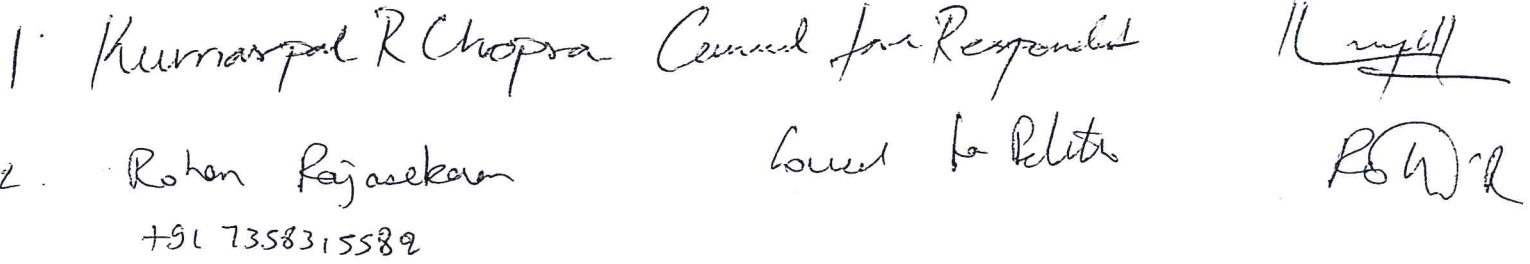 1. Kumarpal R Chopra Counsel for Respondent
2. Rohan Rajasekaran Counsel for Petitioner
+91 7358315589